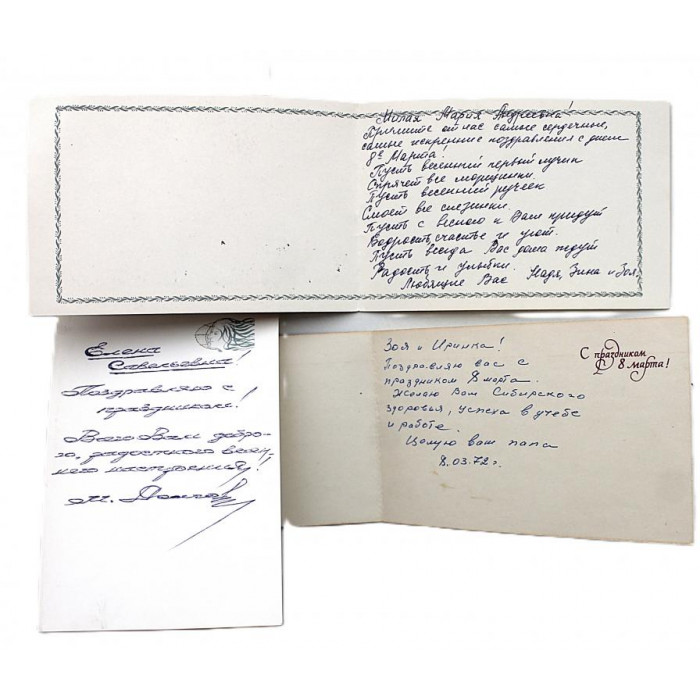 Милая Мария Андреевна!
Примите от нас самые сердечные,
самые искренние поздравления с днем
8е Марта!
Пусть весенний первый лучик
Спрячет все морщинки.
Пусть весенний ручеек
Смоет все слезинки.
Пусть с весною к Вам придут
Бодрость, счастье и уют.
Пусть всегда Вас дома ждут
Радость и улыбки.
Любящие Вас Надя, Зина и Зоя.
Елена
Савельевна!
Поздравляю с
праздником!
Всего Вам добро-
го, радостного весен-
него настроения!
Зоя и Иринка!
Поздравляю вас с
праздником 8 марта.
Желаю Вам Сибирского
здоровья, успеха в учебе
и работе.
Целую ваш папа
8.03.72 г.
С праздником
8 марта!